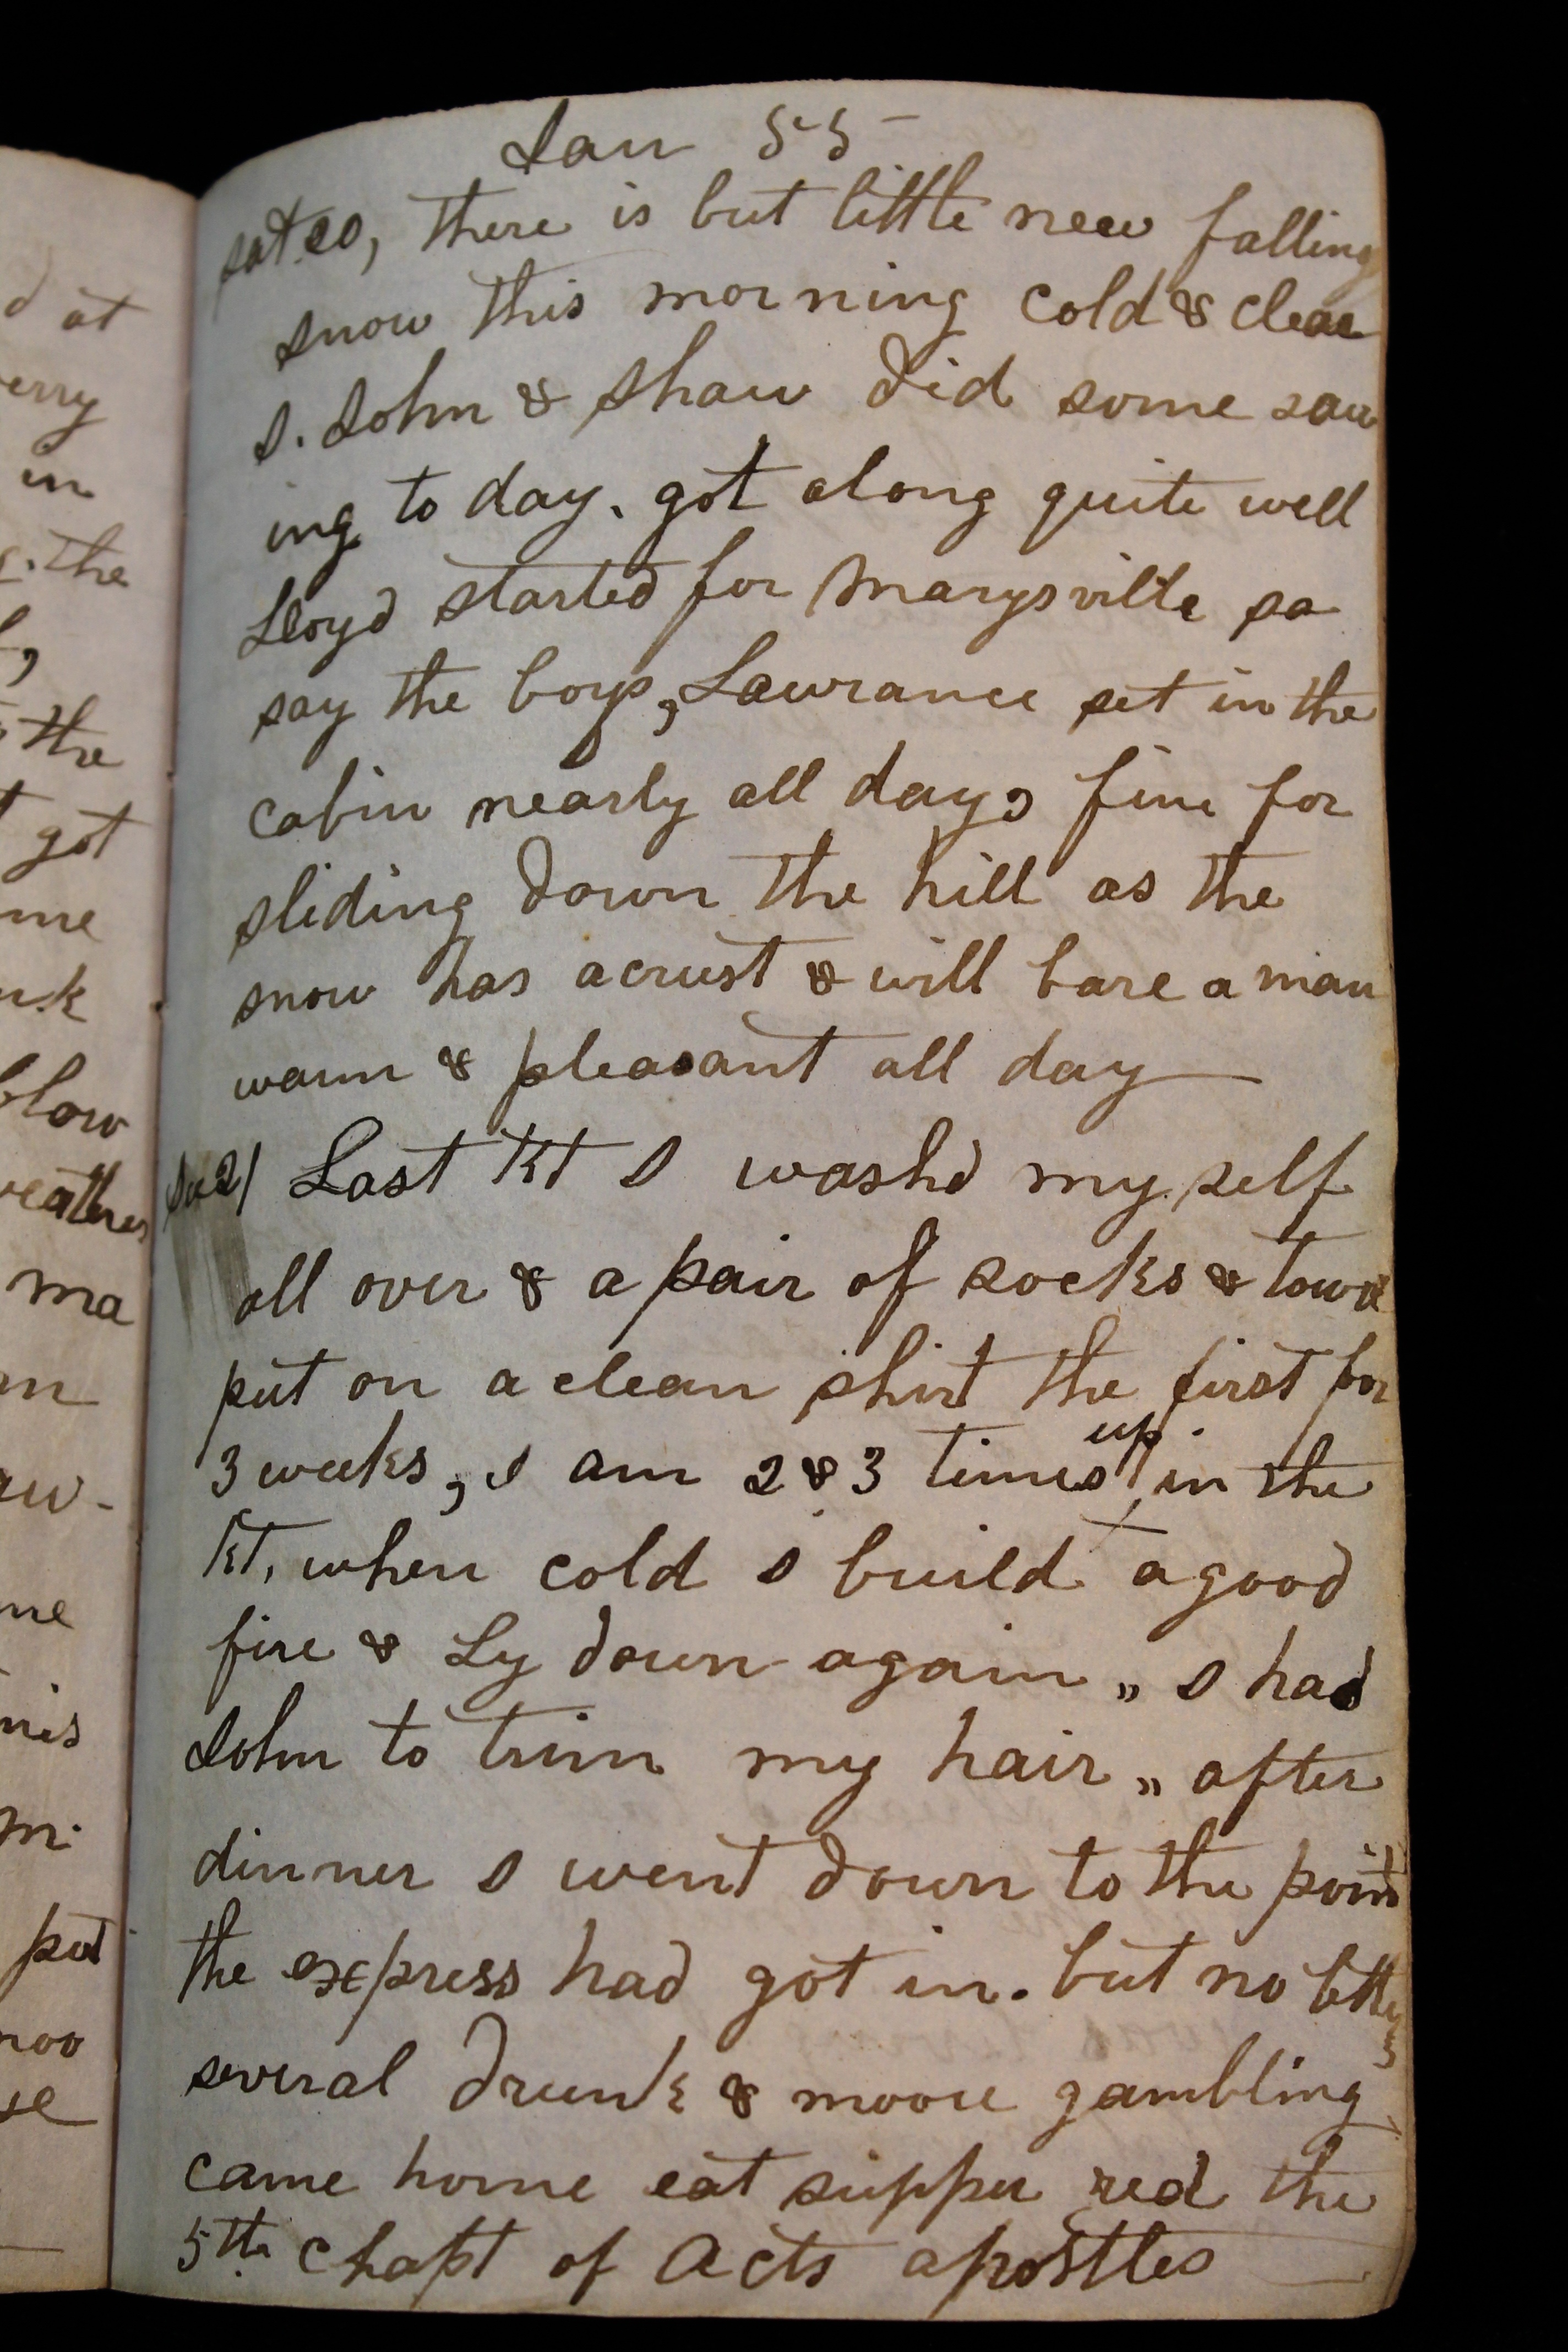 at
erry
in
the
the
got
me
blow
ma
put
Jan 55 -
sat 20, there is but little new falling
snow this morning cold & clear
I. John & Shaw did some saw
ing to day. got along quite well
Lloyd started for Marysville so
say the boys, Lawrance set in the
cabin nearly all day, fine for
sliding down the hill as the
snow has a crust & will bare a man
warm & pleasant all day —
Su 21 Last Nt I washd my self
all over & a pair of socks &
put on a clean shirt the first for
3 weeks, I am 2 & 3 times up in the
Nt, when cold I build a good
fire & Ly down again „ I had
John to trim my hair „ after
dinner I went down to the point
the express had got in. but no letters
several drunk & moore gambling
came home eat supper red the
5th chapt of Acts apostles